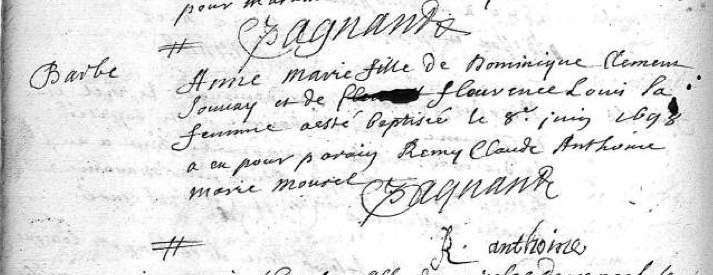 pour
Pagnand
Barbe
Anne Marie fille de Dominique Clement
Jouvay et de flourence Louis sa
femme a esté baptisée le 8e juin 1698
a eu pour parain Remy Claude Anthoine
Marie Mourel Pagnand
R. anthoine